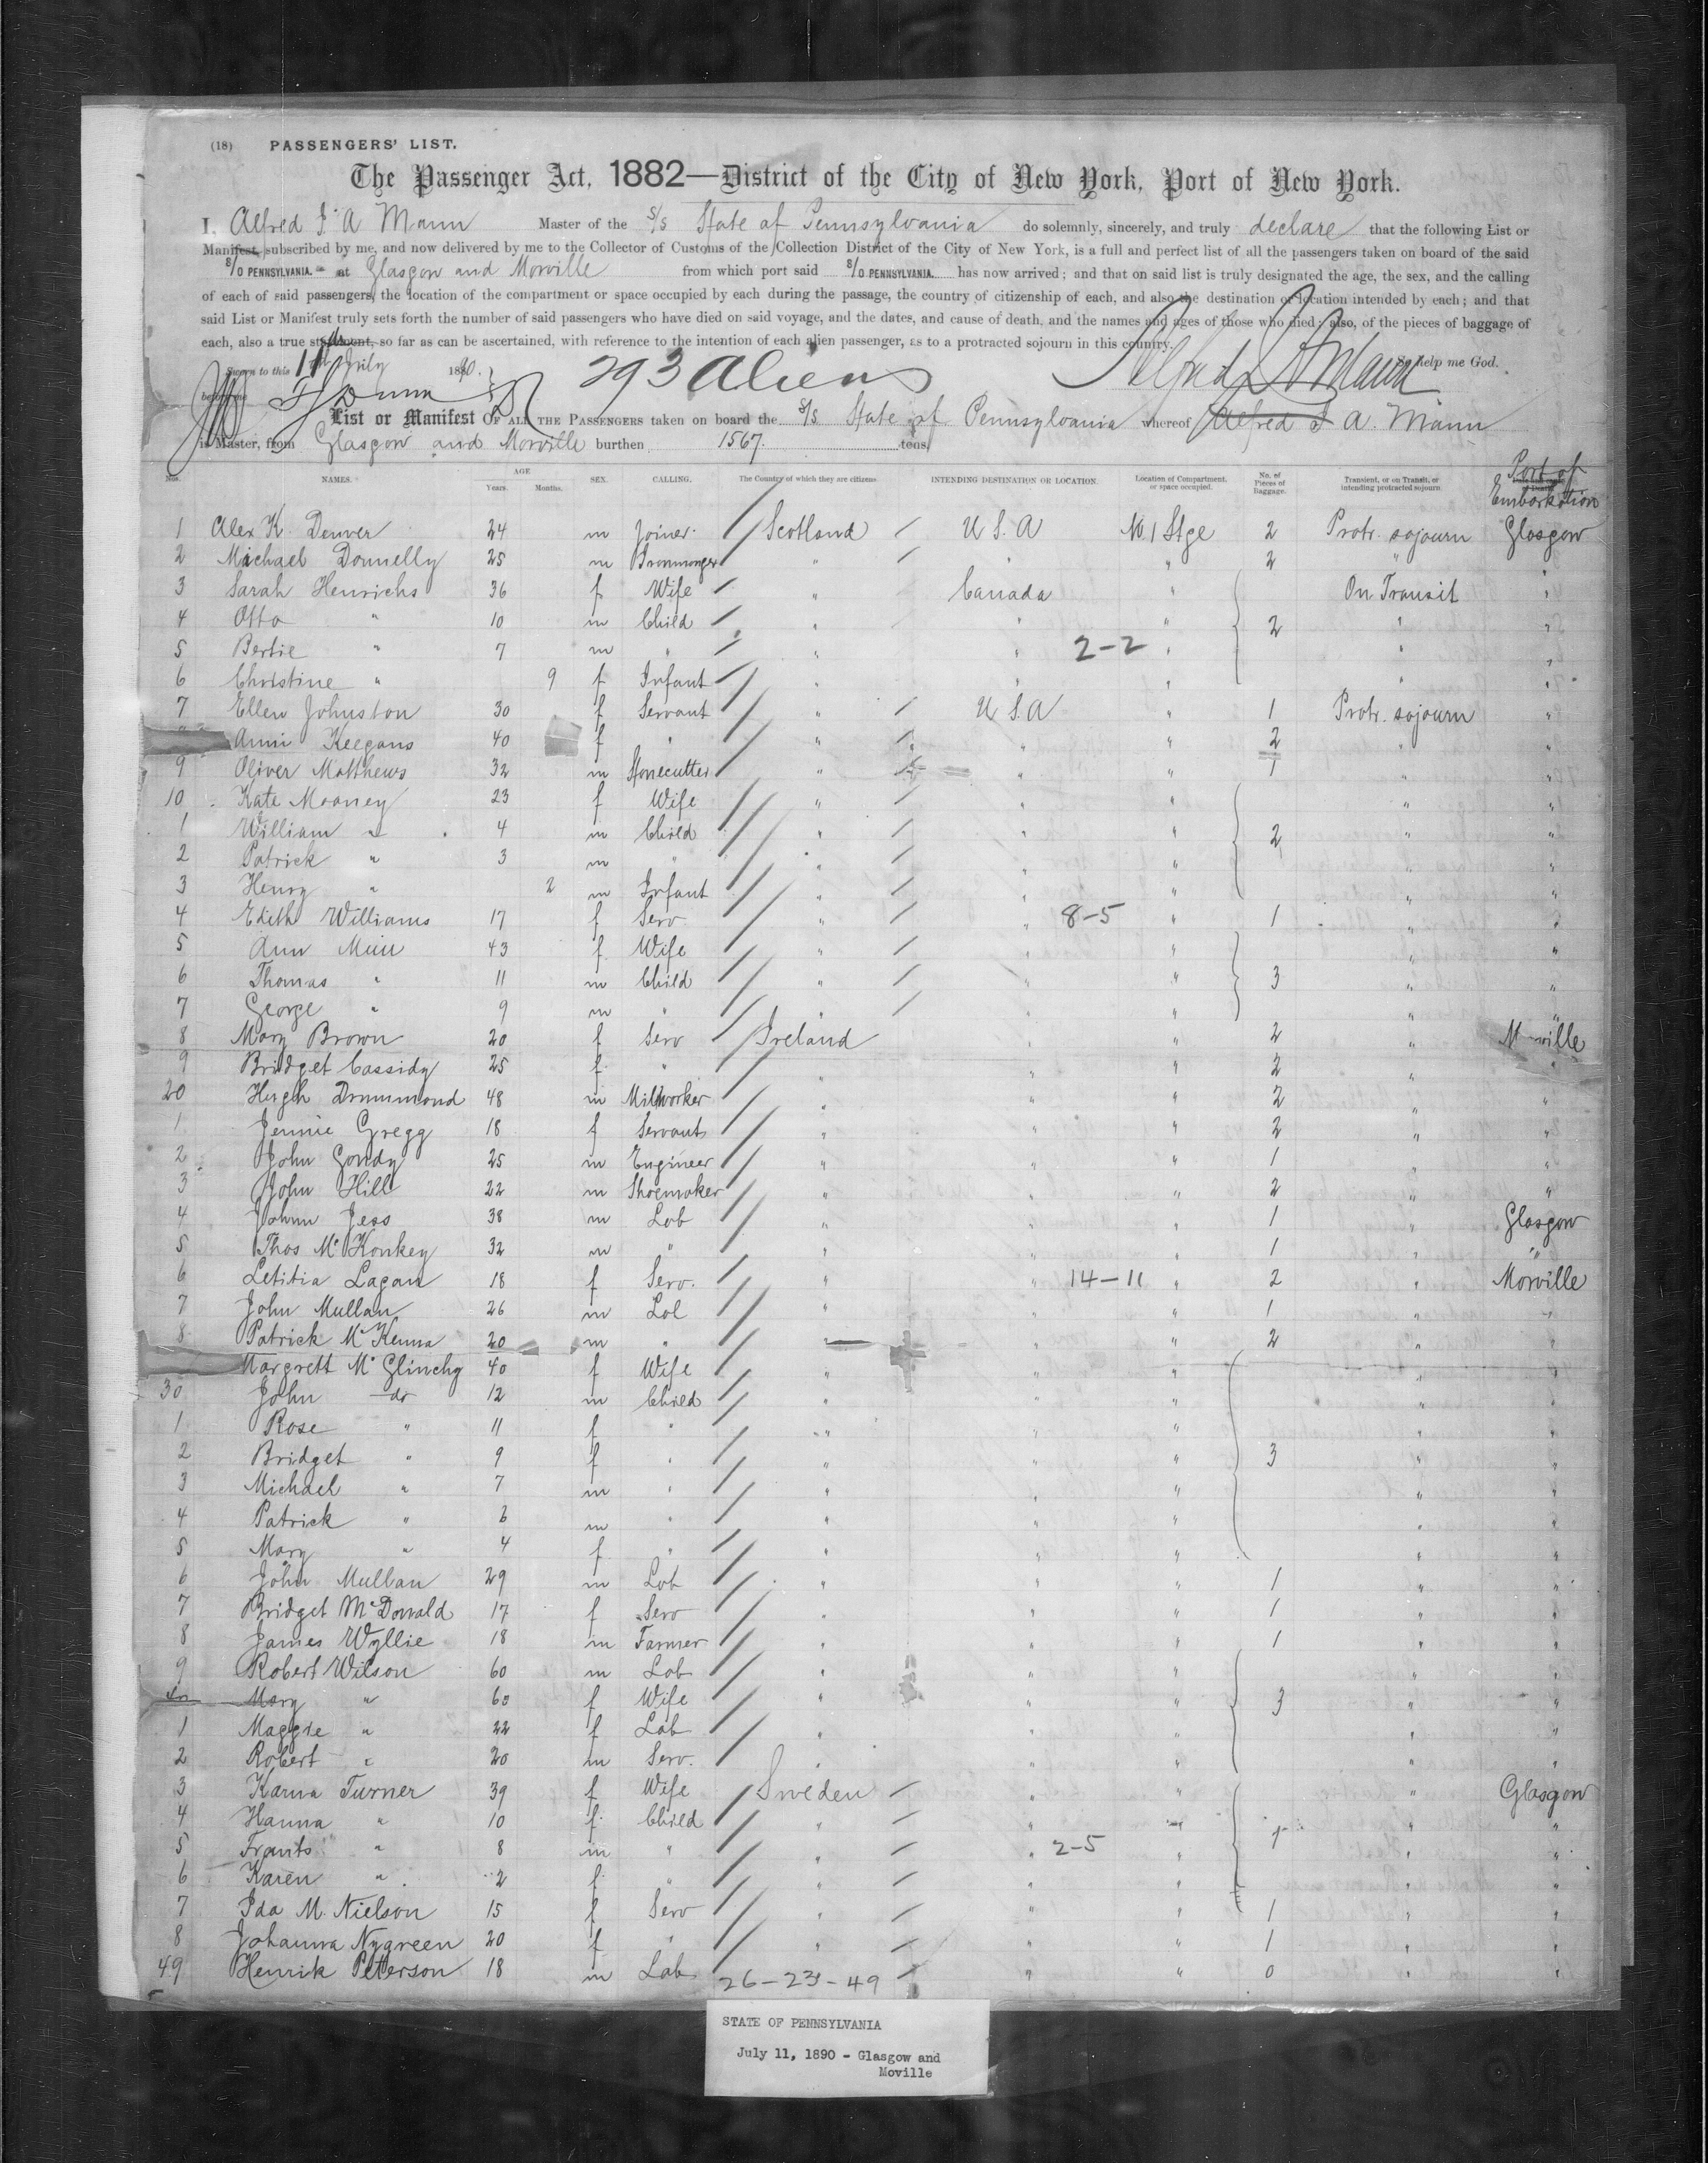 (18) PASSENGERS' LIST.
The Passenger Act, 1882—District of the City of New York, Port of New York.
I, Alfred J. A Mann Master of the S/S State of Pennsylvania do solemnly, sincerely, and truly declare that the following List or
Manifest, subscribed by me, and now delivered by me to the Collector of Customs of the Collection District of the City of New York, is a full and perfect list of all the passengers taken on board of the said
S/O PENNSYLVANIA. at Glasgow and Morville from which port said S/O PENNSYLVANIA. has now arrived; and that on said list is truly designated the age, the sex, and the calling
of each of said passengers, the location of the compartment or space occupied by each during the passage, the country of citizenship of each, and also the destination or location intended by each; and that
said List or Manifest truly sets forth the number of said passengers who have died on said voyage, and the dates, and cause of death, and the names and ages of those who died; also, of the pieces of baggage of
each, also a true statement, so far as can be ascertained, with reference to the intention of each alien passenger, as to a protracted sojourn in this country.
Sworn to this 11th July 1890. 293 Aliens Alfred J A Mann So help me God.
before me
List or Manifest OF ALL THE PASSENGERS taken on board the S/S State of Pennsylvania whereof Alfred J A. Mann
is Master, from Glasgow and Morville burthen 1567. tons,
Nos. NAMES. AGE Years. Months. SEX. CALLING. The Country of which they are citizens. INTENDING DESTINATION OR LOCATION. Location of Compartment or space occupied. No. of Pieces of Baggage. Transient, or on Transit, or intending protracted sojourn. Port of Embarkation
1 Alex K. Denver 24 m Joiner Scotland U.S.A No. 1 Stge 2 Protr. sojourn Glasgow
2 Michael Donnelly 25 m Ironmonger " " " 2 "
3 Sarah Henrichs 36 f Wife " Canada " On Transit "
4 Otto " 10 m Child " " " 2 " "
5 Bertie " 7 m " " " 2-2 " " "
6 Christine " 9 f Infant " " " " "
7 Ellen Johnston 30 f Servant " U.S.A " 1 Protr. sojourn "
Anni Keegans 40 f " " " " 2 " "
9 Oliver Matthews 32 m Stonecutter " " " 1 " "
10 Kate Mooney 23 f Wife " " " " "
1 William " 4 m Child " " " 2 " "
2 Patrick " 3 m " " " " " "
3 Henry " 2 m Infant " " " " "
4 Edith Williams 17 f Serv " " 8-5 " 1 " "
5 Ann Muir 43 f Wife " " " " "
6 Thomas " 11 m Child " " " 3 " "
7 George " 9 m " " " " " "
8 Mary Brown 20 f Serv Ireland " " 2 " Morville
9 Bridget Cassidy 25 f " " " " 2 " "
20 Hugh Drummond 48 m Millworker " " " 2 " "
1 Jennie Gregg 18 f Servant " " " 2 " "
2 John Gondy 25 m Engineer " " " 1 " "
3 John Hill 22 m Shoemaker " " " 2 " "
4 John Jess 38 m Lab " " " 1 " Glasgow
5 Thos McKonkey 32 m " " " " 1 " "
6 Letitia Lagan 18 f Serv. " " 14-11 " 2 " Morville
7 John Mullan 26 m Lab " " " 1 " "
8 Patrick McKenna 20 m " " " 2 " "
Margrett McGlinchy 40 f Wife " " " "
30 John do 12 m Child " " " " "
1 Rose " 11 f " " " " " "
2 Bridget " 9 f " " " " 3 " "
3 Michael " 7 m " " " " " "
4 Patrick " 6 m " " " " " "
5 Mary " 4 f " " " " " "
6 John Mullan 29 m Lab " " " 1 " "
7 Bridget McDonald 17 f Serv " " " 1 " "
8 James Wyllie 18 m Farmer " " " 1 " "
9 Robert Wilson 60 m Lab " " " " "
Mary " 60 f Wife " " " 3 " "
1 Maggie " 22 f Lab " " " " "
2 Robert " 20 m Serv. " " " " "
3 Karna Turner 39 f Wife Sweden " " " Glasgow
4 Hanna " 10 f Child " " " " "
5 Frants " 8 m " " " 2-5 " 1 " "
6 Karen " 2 f " " " " " "
7 Ida M. Nielson 15 f Serv " " " 1 " "
8 Johanna Nygreen 20 f " " " " 1 " "
49 Henrik Peterson 18 m Lab 26-23-49 " " 0 " "
STATE OF PENNSYLVANIA
July 11, 1890 - Glasgow and
Moville